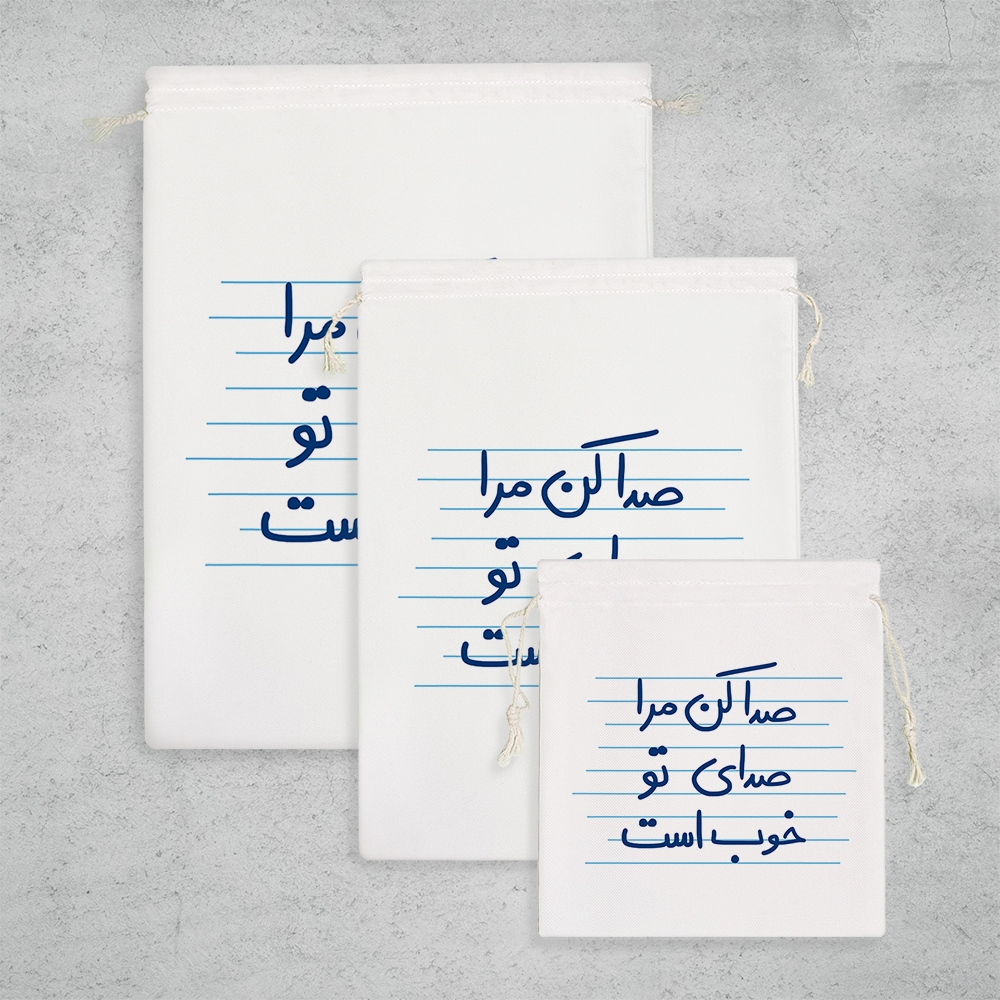 مرا
تو
ست
صدا کن مرا
تو
ست
صدا کن مرا
صدای تو
خوب است